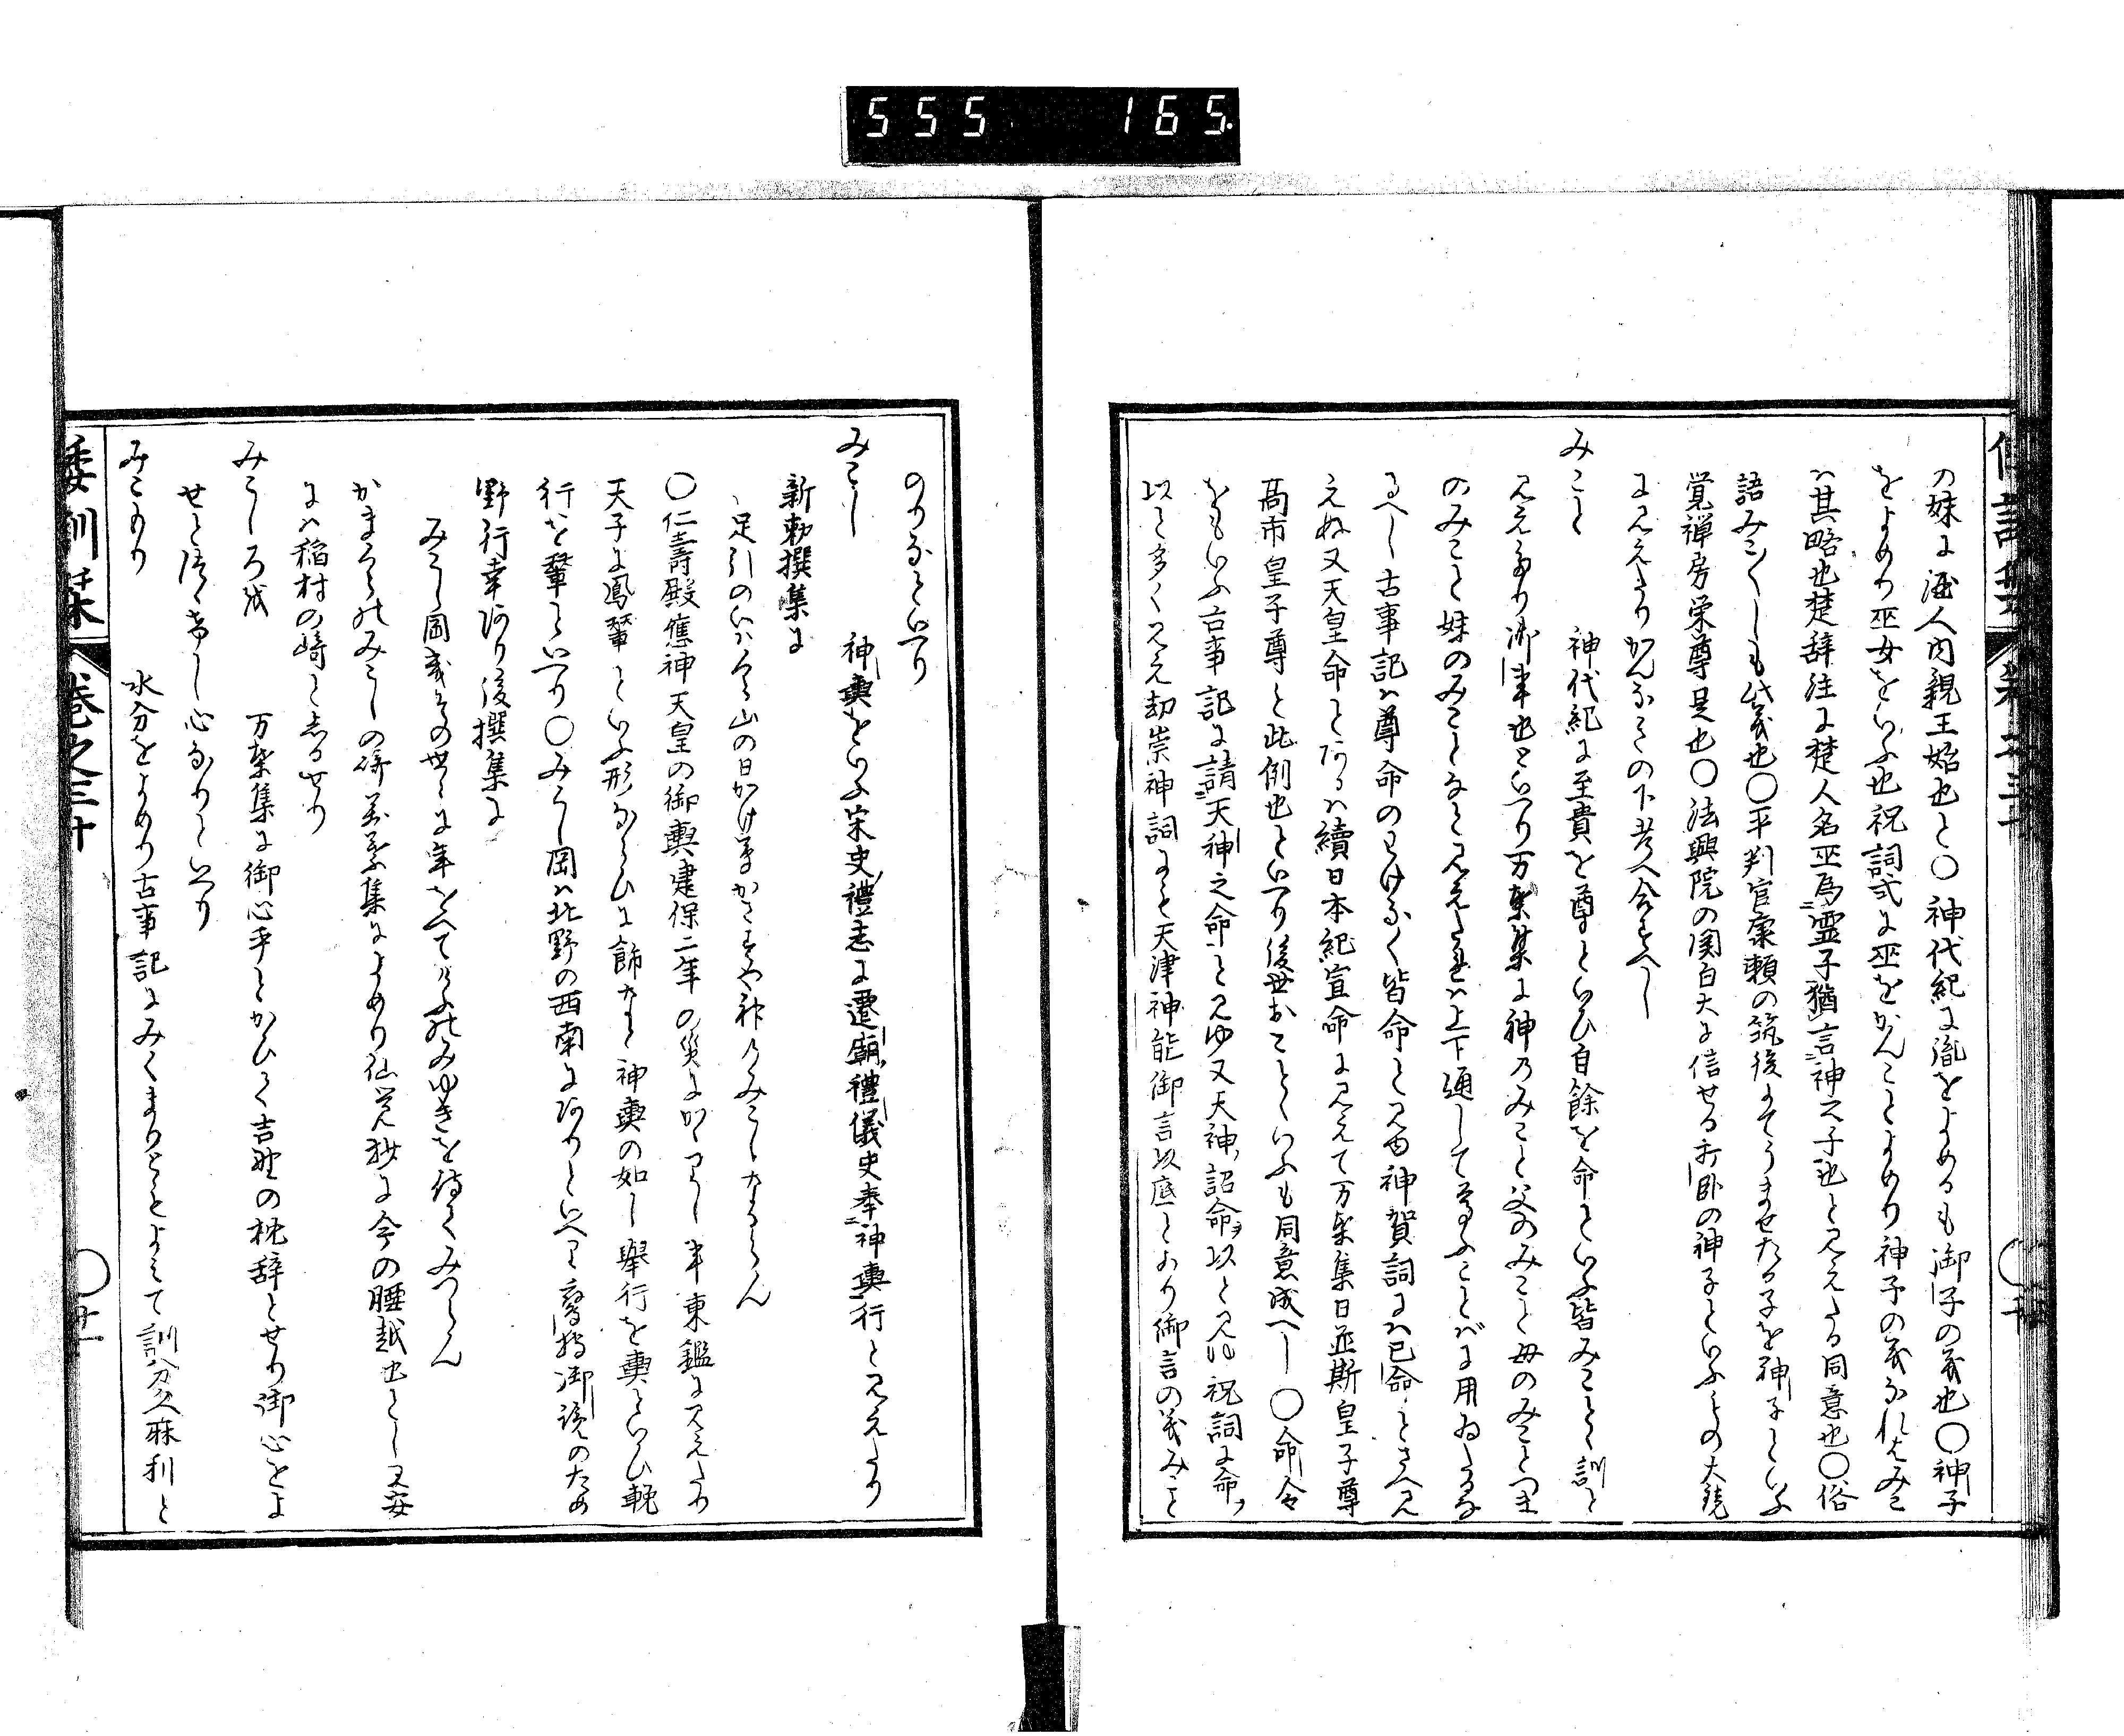 555 165.
の妹は酒人内親王始也と〇神代紀に胤をよめるも御子の義也〇神子
をよめり巫女をいふ也祝詞式に巫をかんことよめり神子の義なれはみこ
は其略也楚辞注に楚人名巫為霊子猶言神之子也と見えたる同意也〇俗
語みこくしも此義也〇平判官康頼の筑後にてうませたる子を神子といふ
覚禅房栄尊是也〇法興院の関白大に信せる打臥の神子といふもの大鏡
に見えたりかんなきの下考へ合すへし
みこと 神代紀に至貴を尊といひ自餘を命といふ皆みことと訓と
見えたり御事也といへり万葉集に神乃みこと父のみこと母のみことつま
のみこと妹のみことなと見えたれは上下通して尊ふことばに用ゐたるな
るへし古事記は尊命のわけなく皆命と見ゆ神賀詞には已命とさへ見
えぬ又天皇命とあるは續日本紀宣命に見えて万葉集日並斯皇子尊
高市皇子尊と此例也といへり後世おことといふも同意成へし〇命令
をもいふ古事記に請天神之命と見ゆ又天神詔命以と見ゆ祝詞に命
以と多く見え劫崇神詞にも天津神能御言以底とあり御言の義みこと
のりなといへり
みこし 神輿をいふ宋史禮志に遷廟禮儀史奉神輿行と見えたり
新勅撰集に
足引のいはくら山の日かけ草かさすや神のみこしなるらん
〇仁壽殿應神天皇の御輿建保二年の災にかゝりし事東鑑に見えたり
天子に鳳輦といふ形ならひに飾なと神輿の如し舉行を輿といひ輓
行を輦といへり〇みこし岡は北野の西南にありといへり
野行幸あり後撰集に
みこし岡いくその世々に年をへてけふのみゆきを待てみつらん
かまくらのみこしの崎万葉集によめり仙覚抄に今の腰越也とし又安
には稲村の崎としるせり
みこゝろを 万葉集に御心乎とかひて吉野の枕辞とせり御心をよ
せとつゝけし心なりといへり
みこもり 水分をよめり古事記にみくまりともよみて訓分久麻利と
倭訓栞 巻之三十 〇廿一